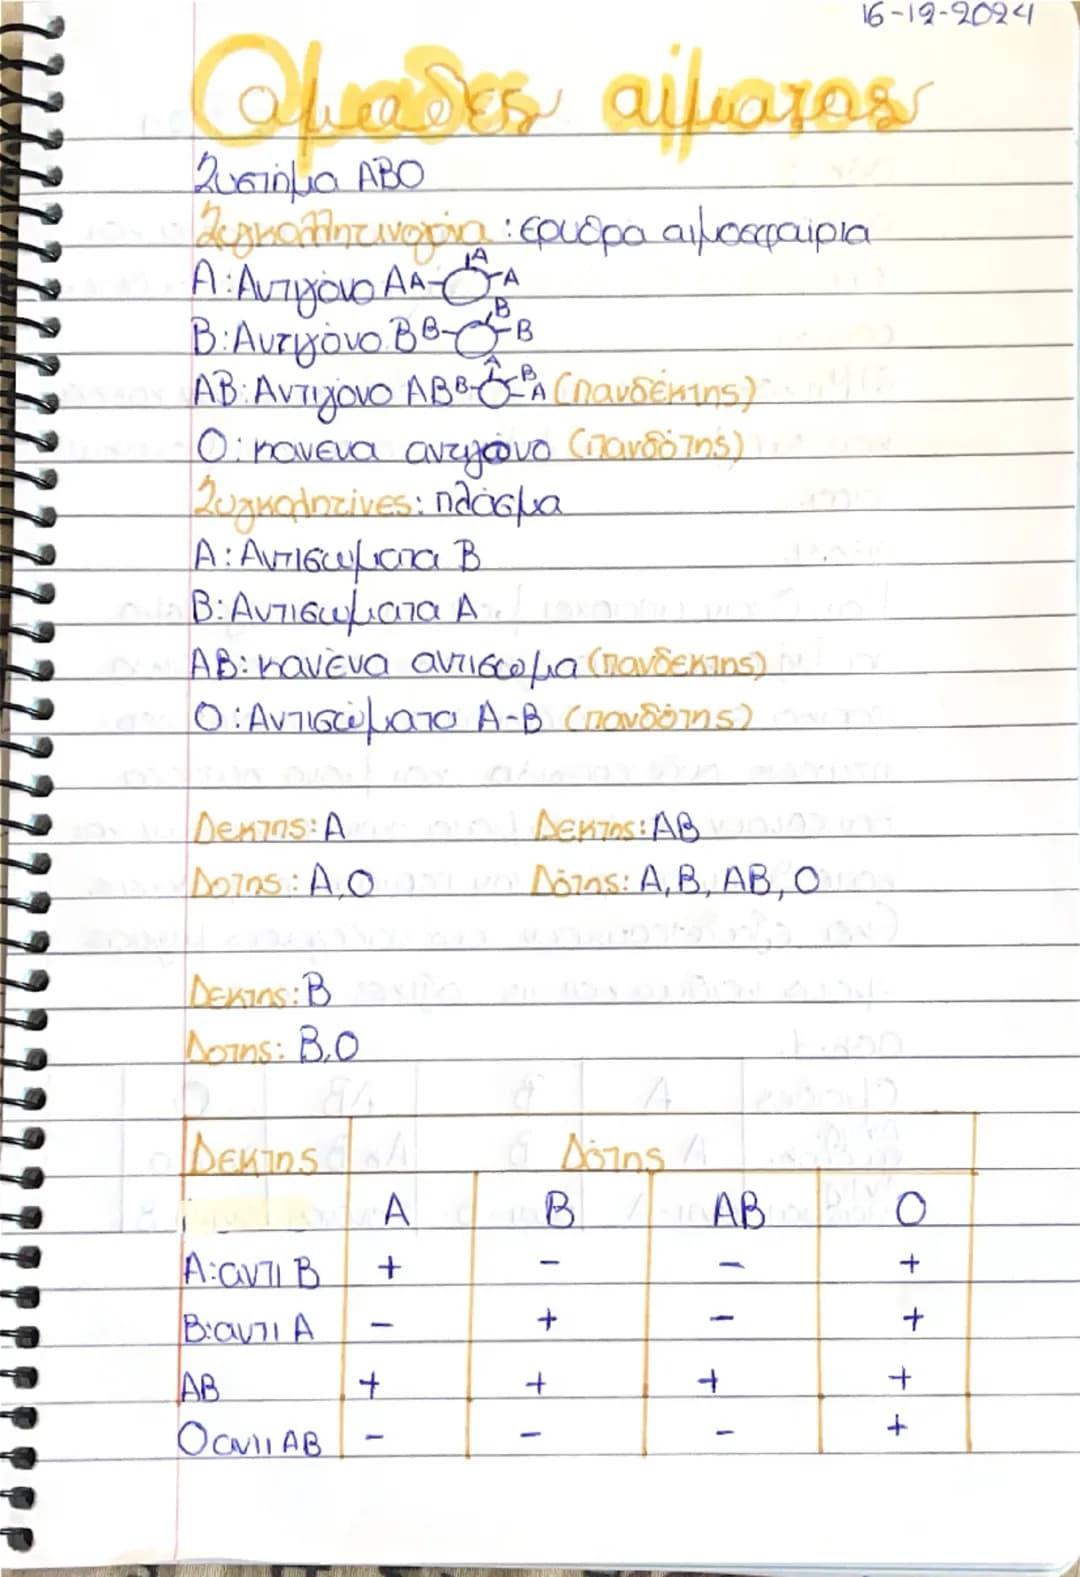 16-12-2024
Ομάδες αίματος
Σύστημα ΑΒΟ
Συγκολλητινογόνα : ερυθρά αιμοσφαίρια
Α: Αντιγόνο Α Α- A -Α
Β: Αντιγόνο Β Β- B -Β
ΑΒ: Αντιγόνο ΑΒ Β- A B A (πανδέκτης)
Ο: κανένα αντιγόνο (πανδότης)
Συγκολητίνες: πλάσμα
Α: Αντισώματα Β
Β: Αντισώματα Α
ΑΒ: κανένα αντισωμα (πανδεκτης)
Ο: Αντισώματα Α-Β (πανδότης)
Δεκτης: Α Δεκτης: ΑΒ
Δοτης: Α,Ο Δότης: Α, Β, ΑΒ, Ο
Δεκτης: Β
Δοτης: Β,Ο
Δεκτης Δότης
Α Β ΑΒ Ο
Α: αντι Β + - - +
Β: αντι Α - + - +
ΑΒ + + + +
Ο αντι ΑΒ - - - +